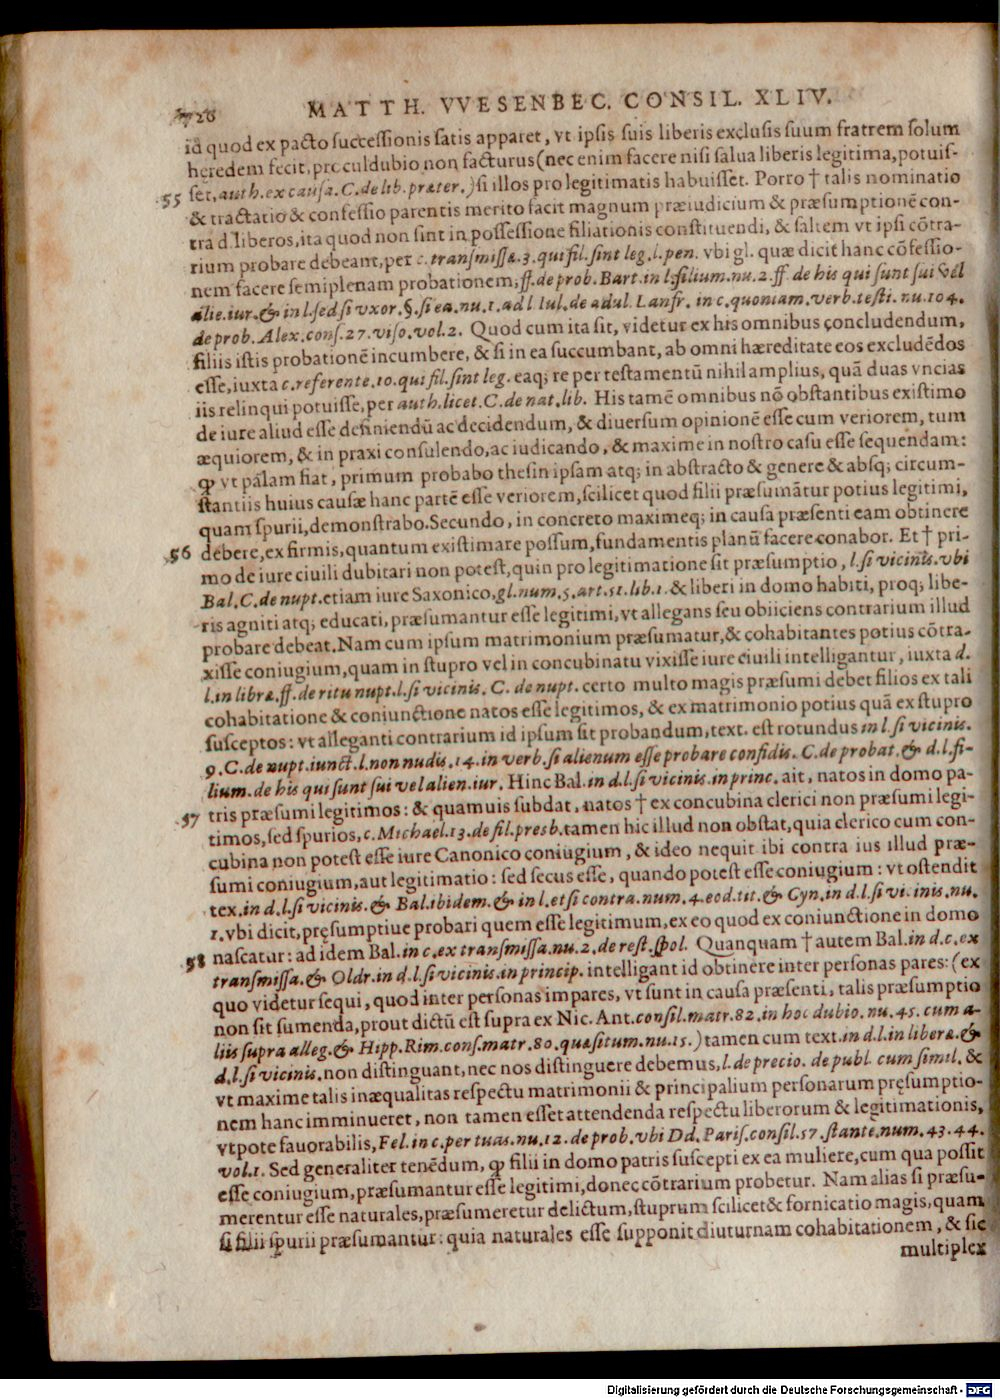 720
MATTH. VVESENBEC. CONSIL. XLIV.
id quod ex pacto successionis satis apparet, vt ipsis suis liberis exclusis suum fratrem solum
heredem fecit, proculdubio non facturus (nec enim facere nisi salua liberis legitima, potuis-
set, auth. ex causa. C. de lib. præter.) si illos pro legitimatis habuisset. Porro † talis nominatio
55 & tractatio & confessio parentis merito facit magnum præiudicium & præsumptionē con-
tra d. liberos, ita quod non sint in possessione filiationis constituendi, & saltem vt ipsi cōtra-
rium probare debeant, per c. transmissæ. 3. qui fil. sint leg. l. pen. vbi gl. quæ dicit hanc cōfessio-
nem facere semiplenam probationem, ff. de prob. Bart. in l. filium. nu. 2. ff. de his qui sunt sui vel
alie. iur. & in l. sed si vxor. §. si ea. nu. 1. ad l. Iul. de adul. Lanfr. in c. quoniam. verb. testi. nu. 104.
de prob. Alex. cons. 27. viso. vol. 2. Quod cum ita sit, videtur ex his omnibus concludendum,
filiis istis probationē incumbere, & si in ea succumbant, ab omni hæreditate eos excludēdos
esse, iuxta c. referente. 10. qui fil. sint leg. eaq; re per testamentū nihil amplius, quā duas vncias
iis relinqui potuisse, per auth. licet. C. de nat. lib. His tamē omnibus nō obstantibus existimo
de iure aliud esse definiendū ac decidendum, & diuersum opinionē esse cum veriorem, tum
æquiorem, & in praxi consulendo, ac iudicando, & maxime in nostro casu esse sequendam:
ꝙ vt palam fiat, primum probabo thesin ipsam atq; in abstracto & genere & absq; circum-
stantiis huius causæ hanc partē esse veriorem, scilicet quod filii præsumātur potius legitimi,
quam spurii, demonstrabo. Secundo, in concreto maximeq; in causa præsenti eam obtinere
56 debere, ex firmis, quantum existimare possum, fundamentis planū facere conabor. Et † pri-
mo de iure ciuili dubitari non potest, quin pro legitimatione sit præsumptio, l. si vicinis. vbi
Bal. C. de nupt. etiam iure Saxonico, gl. num. 5. art. 51. lib. 1. & liberi in domo habiti, proq; libe-
ris agniti atq; educati, præsumantur esse legitimi, vt allegans seu obiiciens contrarium illud
probare debeat. Nam cum ipsum matrimonium præsumatur, & cohabitantes potius cōtra-
xisse coniugium, quam in stupro vel in concubinatu vixisse iure ciuili intelligantur, iuxta d.
l. in libræ. ff. de ritu nupt. l. si vicinis. C. de nupt. certo multo magis præsumi debet filios ex tali
cohabitatione & coniunctione natos esse legitimos, & ex matrimonio potius quā ex stupro
susceptos: vt alleganti contrarium id ipsum sit probandum, text. est rotundus in l. si vicinis.
9. C. de nupt. iunct. l. non nudis. 14. in verb. si alienum esse probare confidis. C. de probat. & d. l. fi-
lium. de his qui sunt sui vel alien. iur. Hinc Bal. in d. l. si vicinis. in princ. ait, natos in domo pa-
tris præsumi legitimos: & quamuis subdat, natos † ex concubina clerici non præsumi legi-
57 timos, sed spurios, c. Michael. 13. de fil. presb. tamen hic illud non obstat, quia clerico cum con-
cubina non potest esse iure Canonico coniugium, & ideo nequit ibi contra ius illud præ-
sumi coniugium, aut legitimatio: sed secus esse, quando potest esse coniugium: vt ostendit
tex. in d. l. si vicinis. & Bal. ibidem. & in l. etsi contra. num. 4. eod. tit. & Cyn. in d. l. si vi inis. nu.
1. vbi dicit, pręsumptiue probari quem esse legitimum, ex eo quod ex coniunctione in domo
nascatur: ad idem Bal. in c. ex transmissa. nu. 2. de rest. spol. Quanquam † autem Bal. in d. c. ex
58 transmissa. & Oldr. in d. l. si vicinis. in princip. intelligant id obtinere inter personas pares: (ex
quo videtur sequi, quod inter personas impares, vt sunt in causa præsenti, talis præsumptio
non sit sumenda, prout dictū est supra ex Nic. Ant. consil. matr. 82. in hoc dubio. nu. 45. cum a-
liis supra alleg. & Hipp. Rim. cons. matr. 80. quæsitum. nu. 15.) tamen cum text. in d. l. in liberæ. &
d. l. si vicinis. non distinguant, nec nos distinguere debemus, l. de precio. de publ. cum simil. &
vt maxime talis inæqualitas respectu matrimonii & principalium personarum pręsumptio-
nem hanc imminueret, non tamen esset attendenda respectu liberorum & legitimationis,
vtpote fauorabilis, Fel. in c. per tuas. nu. 12. de prob. vbi Dd. Paris. consil. 57. stante. num. 43. 44.
vol. 1. Sed generaliter tenēdum, ꝙ filii in domo patris suscepti ex ea muliere, cum qua possit
esse coniugium, præsumantur esse legitimi, donec cōtrarium probetur. Nam alias si præsu-
merentur esse naturales, præsumeretur delictum, stuprum scilicet & fornicatio magis, quam
si filii spurii præsumantur: quia naturales esse supponit diuturnam cohabitationem, & sic
multiplex
Digitalisierung gefördert durch die Deutsche Forschungsgemeinschaft - DFG